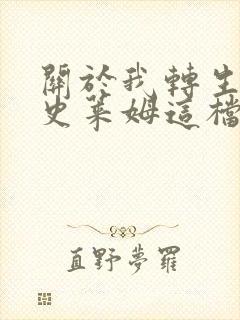 關於我轉生
史萊姆這檔
直野夢羅